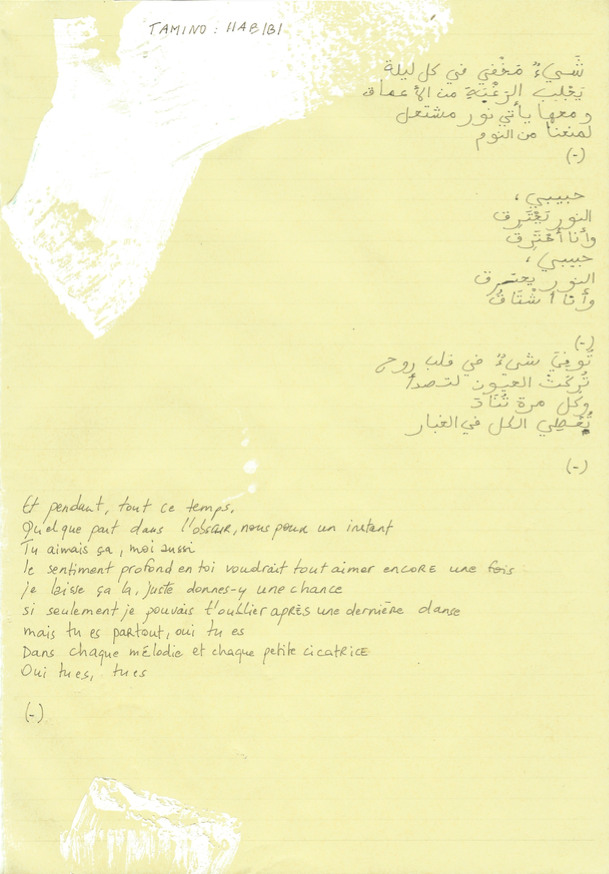 TAMINO : HABIBI
شَيءٌ مَخْفي في كل ليلة
يَجْلِب الرَغْبَة من الأعماق
ومعها يأتي نور مشتعل
لمنعنا من النوم
(-)
حبيبي،
النور يَحْتَرِق
وأنا أحْتَرِقُ
حبيبي،
النور يحترق
وأنا أشْتَاقُ
(-)
تُوفِيَ شيءٌ في قلب روح
تُرِكَتْ العيون لتصدأ
وكل مرة
تُغَطِي الكل في الغبار
(-)
Et pendant, tout ce temps,
Quelque part dans l'obscur, nous pour un instant
Tu aimais ça, moi aussi
le sentiment profond en toi voudrait tout aimer encore une fois
je laisse ça la, juste donnes-y une chance
si seulement je pouvais t'oublier après une dernière danse
mais tu es partout, oui tu es
Dans chaque mélodie et chaque petite cicatrice
Oui tu es, tu es
(-)